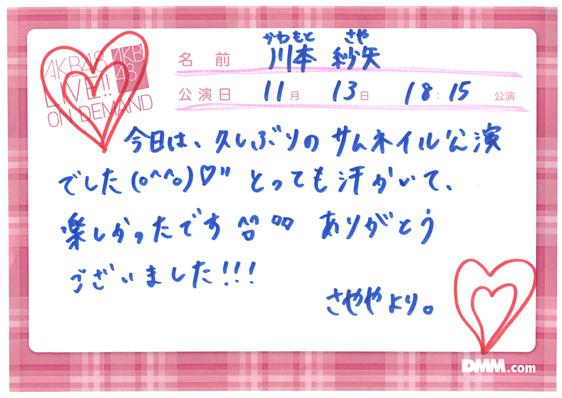 AKB48
LIVE!!
ON DEMAND
AKB
48
かわもと さや
名前 川本 紗矢
公演日 11月 13日 18:15 公演
今日は、久しぶりのサムネイル公演
でした(o^^o)♡" とっても汗かいて、
楽しかったです ^^ ありがとう
ございました!!!
さややより。
DMM.com